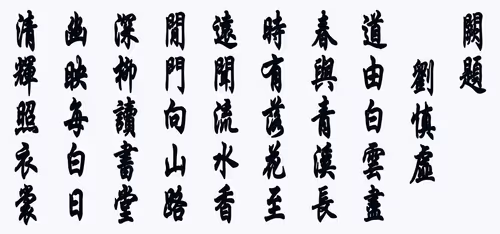 闕題
劉慎虛
道由白雲盡
春與青溪長
時有落花至
遠聞流水香
閒門向山路
深柳讀書堂
幽映每白日
清輝照衣裳